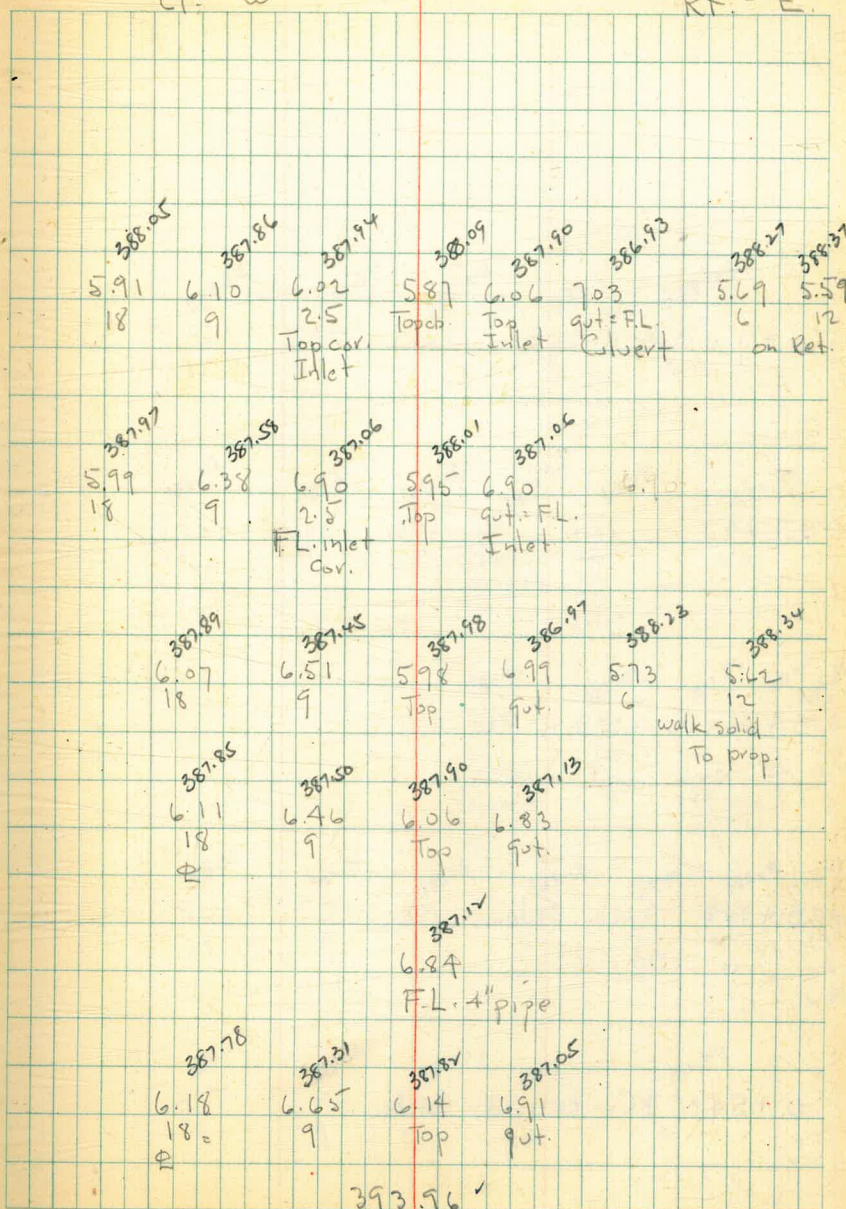 Lt. - W
Rt. - E.
388.05 387.86 387.94 388.09 387.90 386.93 388.27 388.37
5.91 6.10 6.02 5.87 6.06 7.03 5.69 5.59
18 9 2.5 Top cb. Top gut = F.L. 6 12
Top cor. Inlet Culvert on Ret.
Inlet
387.97 387.58 387.06 388.01 387.06
5.99 6.38 6.90 5.95 6.90 6.90
18 9 2.5 Top gut. = F.L.
F.L. inlet Inlet
cor.
387.89 387.45 387.98 386.97 388.23 388.34
6.07 6.51 5.98 6.99 5.73 5.62
18 9 Top gut. 6 12
walk solid
To prop.
387.85 387.50 387.90 387.13
6.11 6.46 6.06 6.83
18 9 Top gut.
387.12
6.84
F.L. 4" pipe
387.78 387.31 387.82 387.05
6.18 6.65 6.14 6.91
18 = 9 Top gut.
393.96 ✓